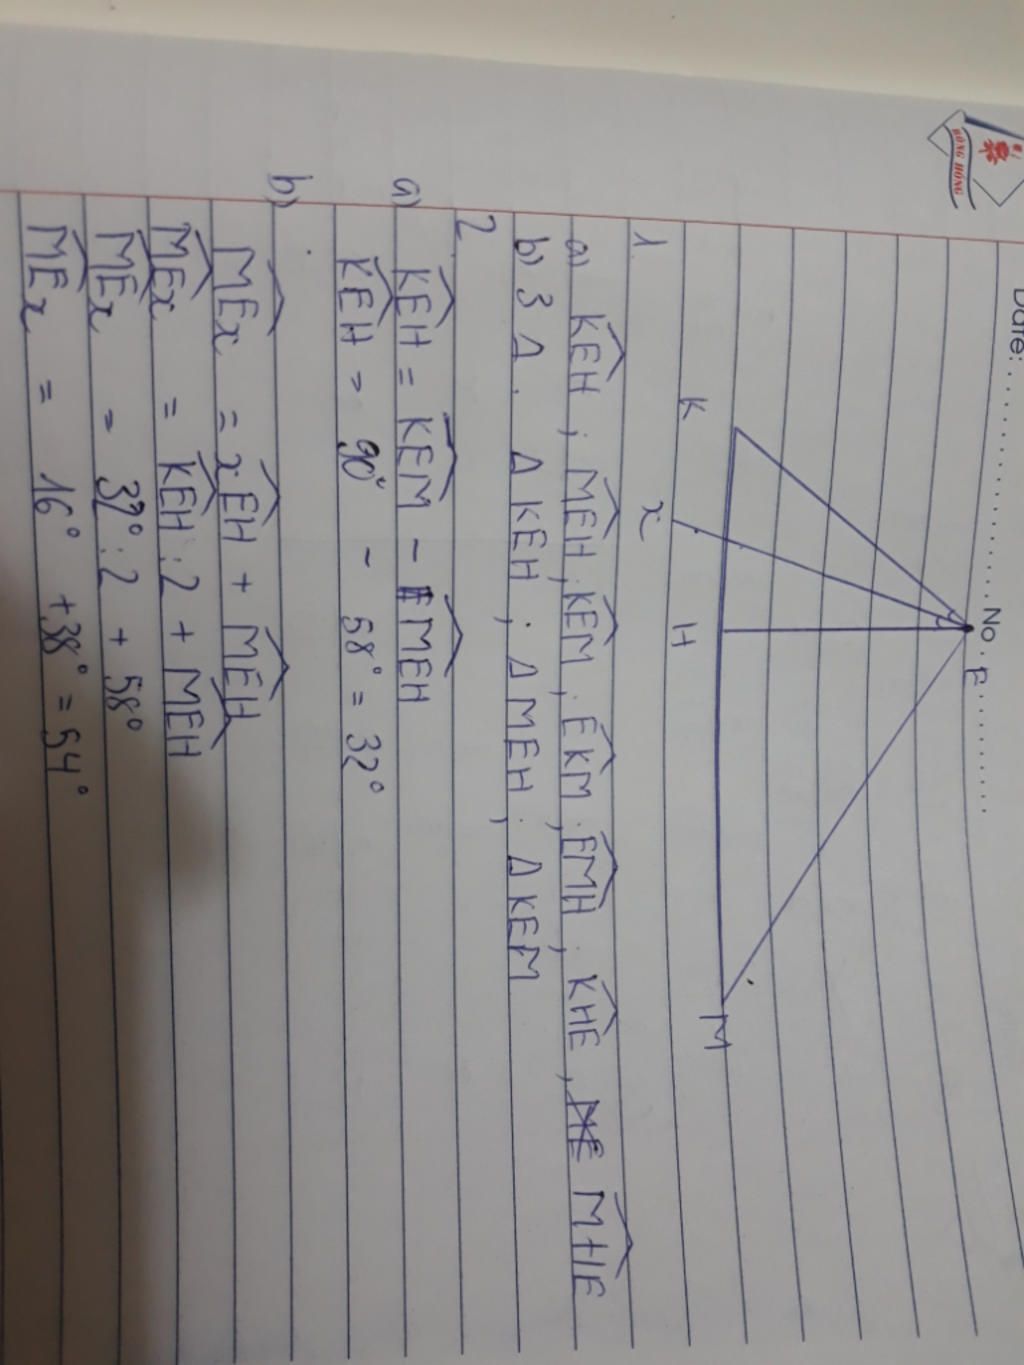 HỒNG HỒNG
Date: No.
E
K x H M
1
a) KEH, MEH, KEM, EKM, EMH, KHE, MHE
b) 3 Δ. ΔKEH; ΔMEH; ΔKEM
2
a) KEH = KEM - MEH
KEH = 90° - 58° = 32°
b)
MEx = xEH + MEH
MEx = KEH : 2 + MEH
MEx = 32° : 2 + 58°
MEx = 16° + 38° = 54°